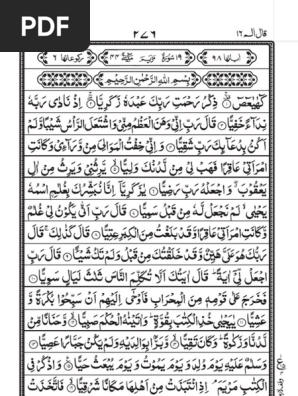 PDF
قال الم ١٦
٢٧٦
اٰیاتها ٩٨ ١٩ سُوْرَةُ مَرْيَمَ مَكِّيَّةٌ ٤٤ رکوعاتها ٦
بِسْمِ اللّٰهِ الرَّحْمٰنِ الرَّحِيْمِ
كٓهٰيٰعٓصٓ ۝ ذِكْرُ رَحْمَتِ رَبِّكَ عَبْدَهٗ زَكَرِيَّا ۝ اِذْ نَادٰى رَبَّهٗ
نِدَآءً خَفِيًّا ۝ قَالَ رَبِّ اِنِّيْ وَهَنَ الْعَظْمُ مِنِّيْ وَاشْتَعَلَ الرَّاْسُ شَيْبًا وَّلَمْ
اَكُنْۢ بِدُعَآئِكَ رَبِّ شَقِيًّا ۝ وَاِنِّيْ خِفْتُ الْمَوَالِيَ مِنْ وَّرَآءِيْ وَكَانَتِ
امْرَاَتِيْ عَاقِرًا فَهَبْ لِيْ مِنْ لَّدُنْكَ وَلِيًّا ۝ يَّرِثُنِيْ وَيَرِثُ مِنْ اٰلِ
يَعْقُوْبَ ۖ وَاجْعَلْهُ رَبِّ رَضِيًّا ۝ يٰزَكَرِيَّآ اِنَّا نُبَشِّرُكَ بِغُلٰمِ ۨاسْمُهٗ
يَحْيٰى ۙ لَمْ نَجْعَلْ لَّهٗ مِنْ قَبْلُ سَمِيًّا ۝ قَالَ رَبِّ اَنّٰى يَكُوْنُ لِيْ غُلٰمٌ
وَّكَانَتِ امْرَاَتِيْ عَاقِرًا وَّقَدْ بَلَغْتُ مِنَ الْكِبَرِ عِتِيًّا ۝ قَالَ كَذٰلِكَ ۚ قَالَ
رَبُّكَ هُوَ عَلَيَّ هَيِّنٌ وَّقَدْ خَلَقْتُكَ مِنْ قَبْلُ وَلَمْ تَكُ شَيْـًٔا ۝ قَالَ رَبِّ
اجْعَلْ لِّيْٓ اٰيَةً ۗ قَالَ اٰيَتُكَ اَلَّا تُكَلِّمَ النَّاسَ ثَلٰثَ لَيَالٍ سَوِيًّا ۝
فَخَرَجَ عَلٰى قَوْمِهٖ مِنَ الْمِحْرَابِ فَاَوْحٰٓى اِلَيْهِمْ اَنْ سَبِّحُوْا بُكْرَةً وَّ
عَشِيًّا ۝ يٰيَحْيٰى خُذِ الْكِتٰبَ بِقُوَّةٍ ۗ وَاٰتَيْنٰهُ الْحُكْمَ صَبِيًّا ۝ وَّحَنَانًا مِّنْ
لَّدُنَّا وَزَكٰوةً ۗ وَكَانَ تَقِيًّا ۝ وَّبَرًّۢا بِوَالِدَيْهِ وَلَمْ يَكُنْ جَبَّارًا عَصِيًّا ۝
وَسَلٰمٌ عَلَيْهِ يَوْمَ وُلِدَ وَيَوْمَ يَمُوْتُ وَيَوْمَ يُبْعَثُ حَيًّا ۝ وَاذْكُرْ فِي
الْكِتٰبِ مَرْيَمَ ۘ اِذِ انْتَبَذَتْ مِنْ اَهْلِهَا مَكَانًا شَرْقِيًّا ۝ فَاتَّخَذَتْ